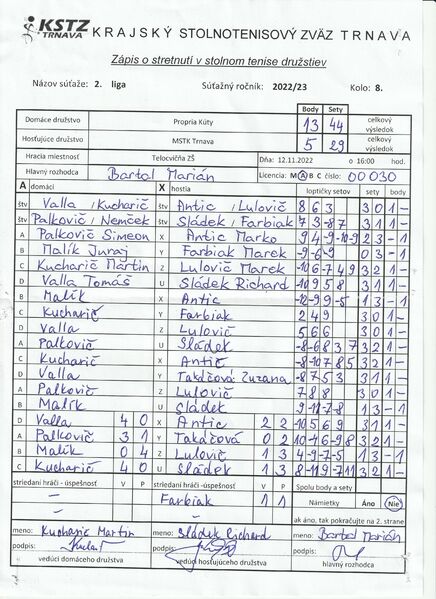 KSTZ TRNAVA KRAJSKÝ STOLNOTENISOVÝ ZVÄZ TRNAVA
Zápis o stretnutí v stolnom tenise družstiev
Názov súťaže: 2. liga Súťažný ročník: 2022/23 Kolo: 8.
Body Sety
Domáce družstvo Propria Kúty 13 44 celkový výsledok
Hosťujúce družstvo MSTK Trnava 5 29 celkový výsledok
Hracia miestnosť Telocvičňa ZŠ Dňa: 12.11.2022 o 16:00 hod.
Hlavný rozhodca Bartal Marián Licencia: M A B C číslo: 00030
A domáci X hostia loptičky setov sety body
štv Valla / Kucharič štv Antic / Lulovič 8 6 3 3 0 1 -
štv Palkovič / Nemček štv Sládek / Farbiak 7 3 -8 7 3 1 1 -
A Palkovič Simeon X Antic Marko 9 4 -9 -10 -9 2 3 - 1
B Malík Juraj Y Farbiak Marek -9 -6 -9 0 3 - 1
C Kucharič Martin Z Lulovič Marek -10 6 -7 4 9 3 2 1 -
D Valla Tomáš U Sládek Richard 10 9 5 8 3 1 1 -
B Malík X Antic -12 -9 9 -5 1 3 - 1
C Kucharič Y Farbiak 2 4 9 3 0 1 -
D Valla Z Lulovič 5 6 6 3 0 1 -
A Palkovič U Sládek -8 -6 8 3 7 3 2 1 -
C Kucharič X Antic -8 -10 7 8 5 3 2 1 -
D Valla Y Takáčová Zuzana -8 7 5 3 3 1 1 -
A Palkovič Z Lulovič 7 8 8 3 0 1 -
B Malík U Sládek 9 -11 -7 -8 1 3 - 1
D Valla 4 0 X Antic 2 2 -10 5 6 9 3 1 1 -
A Palkovič 3 1 Y Takáčová 0 2 10 -4 6 -9 8 3 2 1 -
B Malík 0 4 Z Lulovič 1 3 4 -9 -7 -5 1 3 - 1
C Kucharič 4 0 U Sládek 1 3 8 -11 9 -7 11 3 2 1 -
striedaní hráči -úspešnosť V P striedaní hráči - úspešnosť V P Spolu body a sety
- Farbiak 1 1 Námietky Áno Nie
- ak áno, tak pokračujte na 2. strane
meno: Kucharič Martin meno: Sládek Richard meno: Bartal Marián
podpis: podpis: podpis:
vedúci domáceho družstva vedúci hosťujúceho družstva hlavný rozhodca